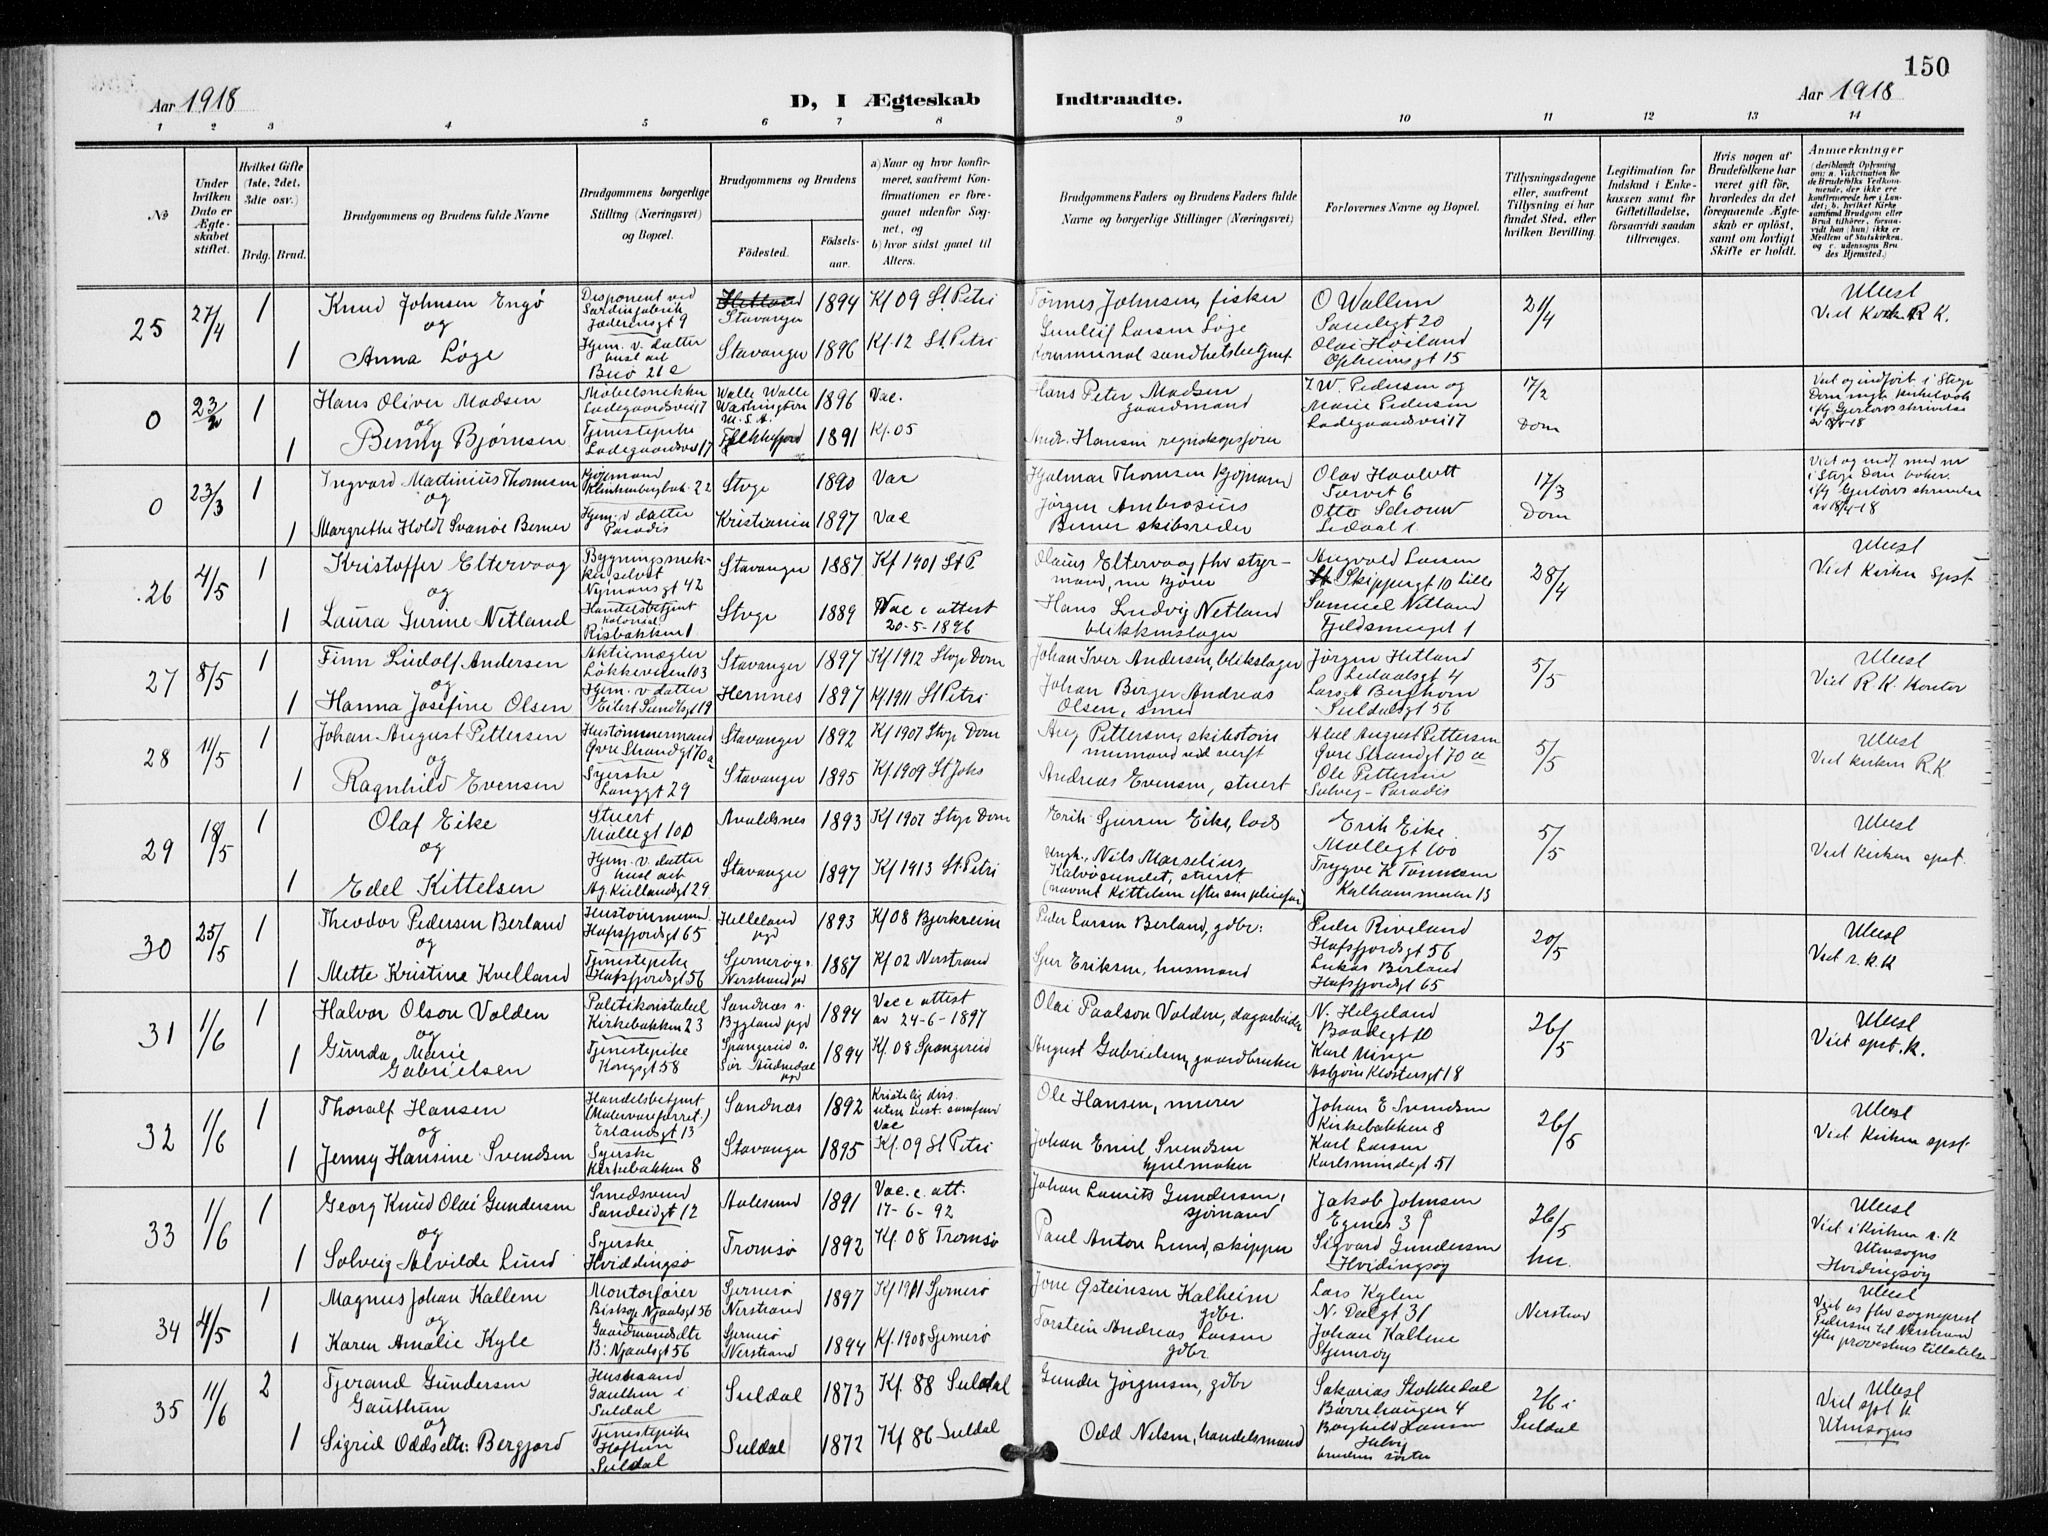 150
Aar 1918
D, I Ægteskab Indtraadte.
Aar 1918
1 2 3 4 5 6 7 8 9 10 11 12 13 14
No
Under hvilken Dato er Ægteskabet stiftet.
Hvilket Gifte (1ste, 2det, 3die osv.)
Brdg. Brud.
Brudgommens og Brudens fulde Navne
Brudgommens borgerlige Stilling (Næringsvei) og Bopæl.
Brudgommens og Brudens
Fødested.
Fødselsaar.
a) Naar og hvor konfirmeret, saafremt Konfirmationen er foregaaet udenfor Sognet, og
b) hvor sidst gaaet til Alters.
Brudgommens Faders og Brudens Faders fulde Navne og borgerlige Stillinger (Næringsvei)
Forlovernes Navne og Bopæl.
Tillysningsdagene eller, saafremt Tillysning ei har fundet Sted, efter hvilken Bevilling.
Legitimation for Indskud i Enkekassen samt for Giftetilladelse, forsaavidt saadan tiltrænges.
Hvis nogen af Brudefolkene har været gift før, hvorledes da det foregaaende Ægteskab er opløst, samt om lovligt Skifte er holdt.
Anmerkninger
(deriblandt Oplysning om: a. Vaksination for de Brudefolks Vedkommende, der ikke ere konfirmerede her i Landet; b. hvilket Kirkesamfund Brudgom eller Brud tilhører, forsaavidt han (hun) ikke er Medlem af Statskirken, og c. udensogns Brudes Hjemsted.)
25 27/4 1
Knud Johnsen Engø
og
1 Anna Løge
Disponent ved
Sardinfabrik
Jæderensgt 9
Hjem. v. datter
husl. arb
Buø 21 a
Stavanger 1894 Kf 09 St. Petri
Stavanger 1896 Kf. 12 St. Petri
Tönnes Johnsen, fisker
Gunleif Larsen Løge
kommunal sundhetsbetjent.
O Wallem
Sandegt 20
Olai Høiland
Opheimsgt 15
21/4
Ulvest
Viet Kirken R K.
0 23/2 1
Hans Oliver Madsen
og
1 Benny Bjørnsen
Møbelsnekker
Ladegaardsvei 17
Tjenestepike
Ladegaardsvei 17
Walle Walle
Washington
U. S. A. 1896 Vac.
Flekkefjord 1891 Kf. 05
Hans Peter Madsen
gaardmand
Andr. Hansen
Pedersen og
Marie Pedersen
Ladegaardsvei 17
17/2
Dom
0 23/3 1
Ingvard Martinius Thomsen
og
1 Margrethe Holdt Svanøe Berner
Kjøpmand
Klinkenbergbak. 22
Hjem. v datter
Paradis
Stvgr 1890 Vac
Kristiania 1897 Vac
Hjalmar Thomsen kjøpmand
Jørgen Ambrosius
Berner skibsreder
Olav Haabett
Torvet 6
Otto Schouw
Ledaal 1.
17/3
Dom
26 4/5 1
Kristoffer Eltervaag
og
1 Laura Gurine Netland
Bygningssnekker selvst
Nymansgt 42
Handelsbetjent
kolonial
Risbakken 1
Stavanger 1887 Kf 1901 St P.
Stvgr 1889 Vac e attest
20-5-1896
Olaus Eltervaag fhv styrmand, nu kjører
Hans Ludvig Netland
blikkenslager
Angvald Larsen
Skippergt 10 Lille
Samuel Netland
Fjeldsmuget 1
28/4
Ulvest
Viet Kirken spst
27 8/5 1
Finn Ludolf Andersen
og
1 Hanna Josefine Olsen
Aktiemægler
Løkkeveien 103
Hjem. v. datter
Eilert Sundtsgt 19
Stavanger 1897 Kf 1912 Stvgr Dom
Hemnes 1897 Kf 1911 St Petri
Johan Iver Andersen, blikslager
Johan Birger Andreas
Olsen, smed
Jørgen Hetland
Ledaalsgt 4
Lars A Berghom
Suldalsgt 56
5/5
Ulvest
Viet R. K. Kontor
28 11/5 1
Johan August Pettersen
og
1 Ragnhild Evensen
Hustømmermand
Øvre Strandgt 70 a
Syerske
Langgt 29
Stavanger 1892 Kf 1907 Stvgr Dom
Stavanger 1895 Kf 1909 St Johs
Aug Pettersen, skibstømmermand ved verft
Andreas Evensen, stuert
Abel August Pettersen
Øvre Strandgt 70 a
Ole Pettersen
Solvig - Paradis
5/5
Ulvest
Viet kirken R.K.
29 18/5 1
Olaf Eike
og
1 Edel Kittelsen
Stuert
Møllegt 100
Hjem. v. datter
husl arb
Ag Kiellandsgt 29
Avaldsnes 1893 Kf 1907 Stvgr Dom
Stavanger 1897 Kf 1913 St. Petri
Erik Gjursen Eike, lods
Ungk. Nils Marselius
Kalvøsundet, stuert
(navnet Kittelsen efter sin pleiefar)
Erik Eike
Møllegt 100
Trygve K Tønnesen
Kalhammeren 13
5/5
Ulvest
Viet kirken spst.
30 25/5 1
Theodor Pedersen Berland
og
1 Mette Kristine Kvelland
Hustømmerm.
Hafsfjordsgt 65
Tjenestepike
Hafsfjordsgt 56
Helleland
pgd 1893 Kf 08 Bjerkreim
Sjernerøy s.
Nerstrand pd 1887 Kf 02 Nerstrand
Peder Larsen Berland, gdbr:
Sjur Eriksen, husmand
Peder Riveland
Hafsfjordsgt 56
Lukas Berland
Hafsfjordsgt 65
20/5
Ulvest
Viet r. k. K
31 1/6 1
Halvor Olson Valden
og
1 Gunda Marie
Gabrielsen
Politikonstabel
Kirkebakken 23
Tjenestepike
Kongsgt 58
Sandnæs s.
Bygland pgd 1894 Vac e attest
av 24-6-1897
Spangereid s.
Sør Audnedal
pgd 1894 Kf. 08 Spangereid
Olai Paalson Valden, dagarbeider
August Gabrielsen, gaardbruker
N. Helgeland
Baadegt 10
Karl Ninge
Asbjørn Klostersgt 18
26/5
Ulvest
Viet spst. K.
32 1/6 1
Thoralf Hansen
og
1 Jenny Hansine Svendsen
Handelsbetjent
(Malervareforret.)
Erlandsgt 13
Syerske
Kirkebakken 8
Sandnæs 1892 Kristelig diss.
uten best. samfund
Vac
Stavanger 1895 Kf. 09 St Petri
Ole Hansen, murer
Johan Emil Svendsen
hjulmaker
Johan E Svendsen
Kirkebakken 8
Karl Larsen
Karlsmindegt 51
26/5
Ulvest
Viet Kirken spst
33 1/6 1
Georg Knud Olai Gundersen
og
1 Solveig Alvilde Lund
Smedsvend
Sandeidgt 12
Syerske
Hviddingsø
Aalesund 1891 Vac. e. att.
17-6-92
Tromsø 1892 Kf 08 Tromsø
Johan Laurits Gundersen,
sjømand
Paul Anton Lund, skipper
Jakob Johnsen
Egenes 3
Sigvard Gundersen
Hvidingsøy
26/5
her.
Ulvest
Viet i Kirken r. K
Utensogns
Hvidingsøy
34 4/5 1
Magnus Johan Kallem
og
1 Karen Amalie Kyle
Montørfører
Biskop Njaalsgt 56
Gaardmandsdtr
B: Njaalsgt 56
Sjernerø
Nerstrand 1897 Kf 1911 Sjernerø
Sjernerø
Nerstrand 1894 Kf. 1908 Sjernerø
Jone Østeinsen Kalheim
gdbr.
Torstein Andreas Larsen
gdbr.
Lars Kylen
N. Dalgt 31
Johan Kallem
Stjernerøy
Nerstrand
Ulvest
Viet av fhv sogneprest
Pedersen til Nerstrand
efter provestens tillatelse
35 11/6 2
Tjerand Gundersen
Gauthun
og
1 Sigrid Oddsdtr: Bergjord
Husmand
Gauthun i
Suldal
Tjenestepike
Hoftun
Suldal
Suldal 1873 Kf. 88 Suldal
Suldal 1872 Kf 86 Suldal
Gunder Jörgensen, gdbr
Odd Nilsen, handelsmand
Sakarias Stokkedal
Børrehaugen 4
Borghild Hansen
brudens søster
2/6 i
Suldal
Ulvest
Viet
spst K
Utensogns